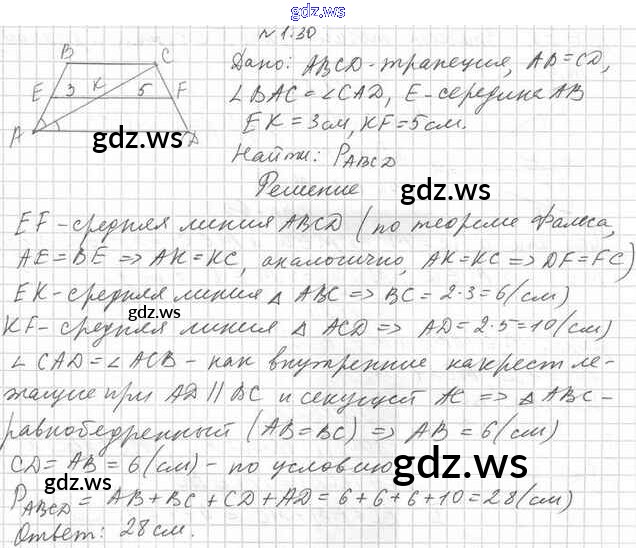 gdz.ws
№ 1.30
B C
E 3 K 5 F
A D
Дано: ABCD - трапеция, AB = CD,
∠BAC = ∠CAD, E - середина AB
EK = 3 см, KF = 5 см.
Найти: P ABCD
gdz.ws
gdz.ws
Решение
EF - средняя линия ABCD (по теореме Фалеса,
AE = BE => AK = KC, аналогично, AK = KC => DF = FC)
EK - средняя линия △ ABC => BC = 2·3 = 6 (см)
gdz.ws
KF - средняя линия △ ACD => AD = 2·5 = 10 (см)
∠CAD = ∠ACB - как внутренние накрест ле-
жащие при AD || BC и секущей AC => △ ABC -
равнобедренный (AB = BC) => AB = 6 (см)
CD = AB = 6 (см) - по условию
gdz.ws
gdz.ws
P ABCD = AB + BC + CD + AD = 6 + 6 + 6 + 10 = 28 (см)
Ответ: 28 см.